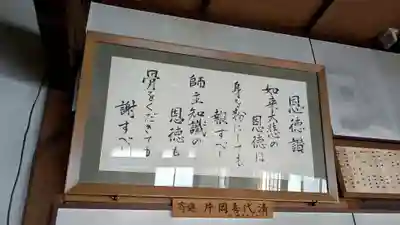 恩徳讃
如来大悲の
恩徳は
身を粉にしても
報ずべし
師主知識の
恩徳も
骨をくだきても
謝すべし
清代喜岡片